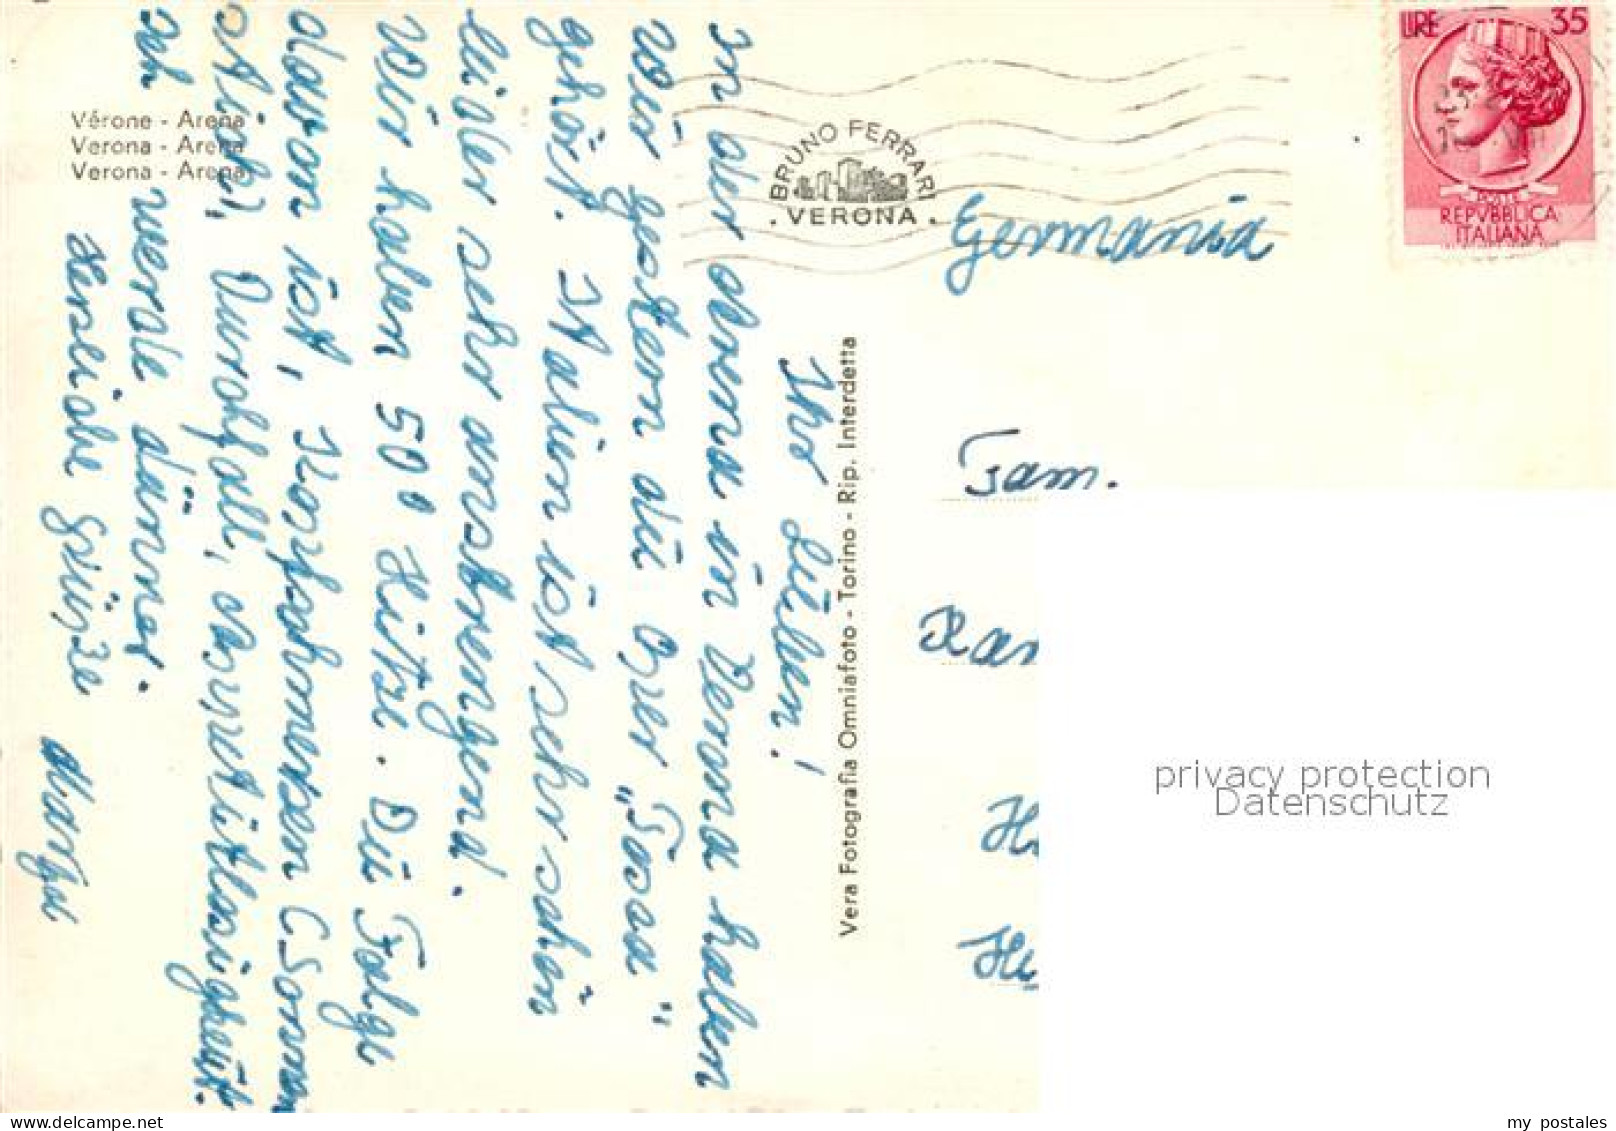 Vérone - Arena
Verona - Arena
Verona - Arena
Ihr Lieben!
In der Arena in Verona haben
wir gestern die Oper "Tosca"
gehört. Italien ist sehr schön
leider sehr anstrengend.
Wir haben 50° Hitze. Die Folge
davon ist, Kopfschmerzen (Sonnen
stich), Durchfall, Appetitlosigkeit.
Ich werde dünner.
Herzliche Grüße
Vera Fotografia Omniafoto - Torino - Rip. Interdetta
BRUNO FERRARI
VERONA
LIRE 35
POSTE
REPVBBLICA
ITALIANA
Germania
Fam.
privacy protection
Datenschutz
www.delcampe.net
my postales